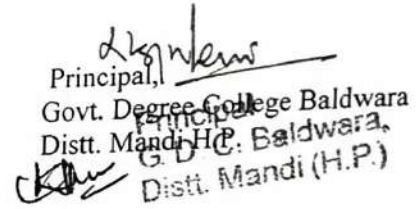 Principal,
Govt. Degree College Baldwara
Distt. Mandi H.P.
Principal
G. D. C. Baldwara,
Distt. Mandi (H.P.)